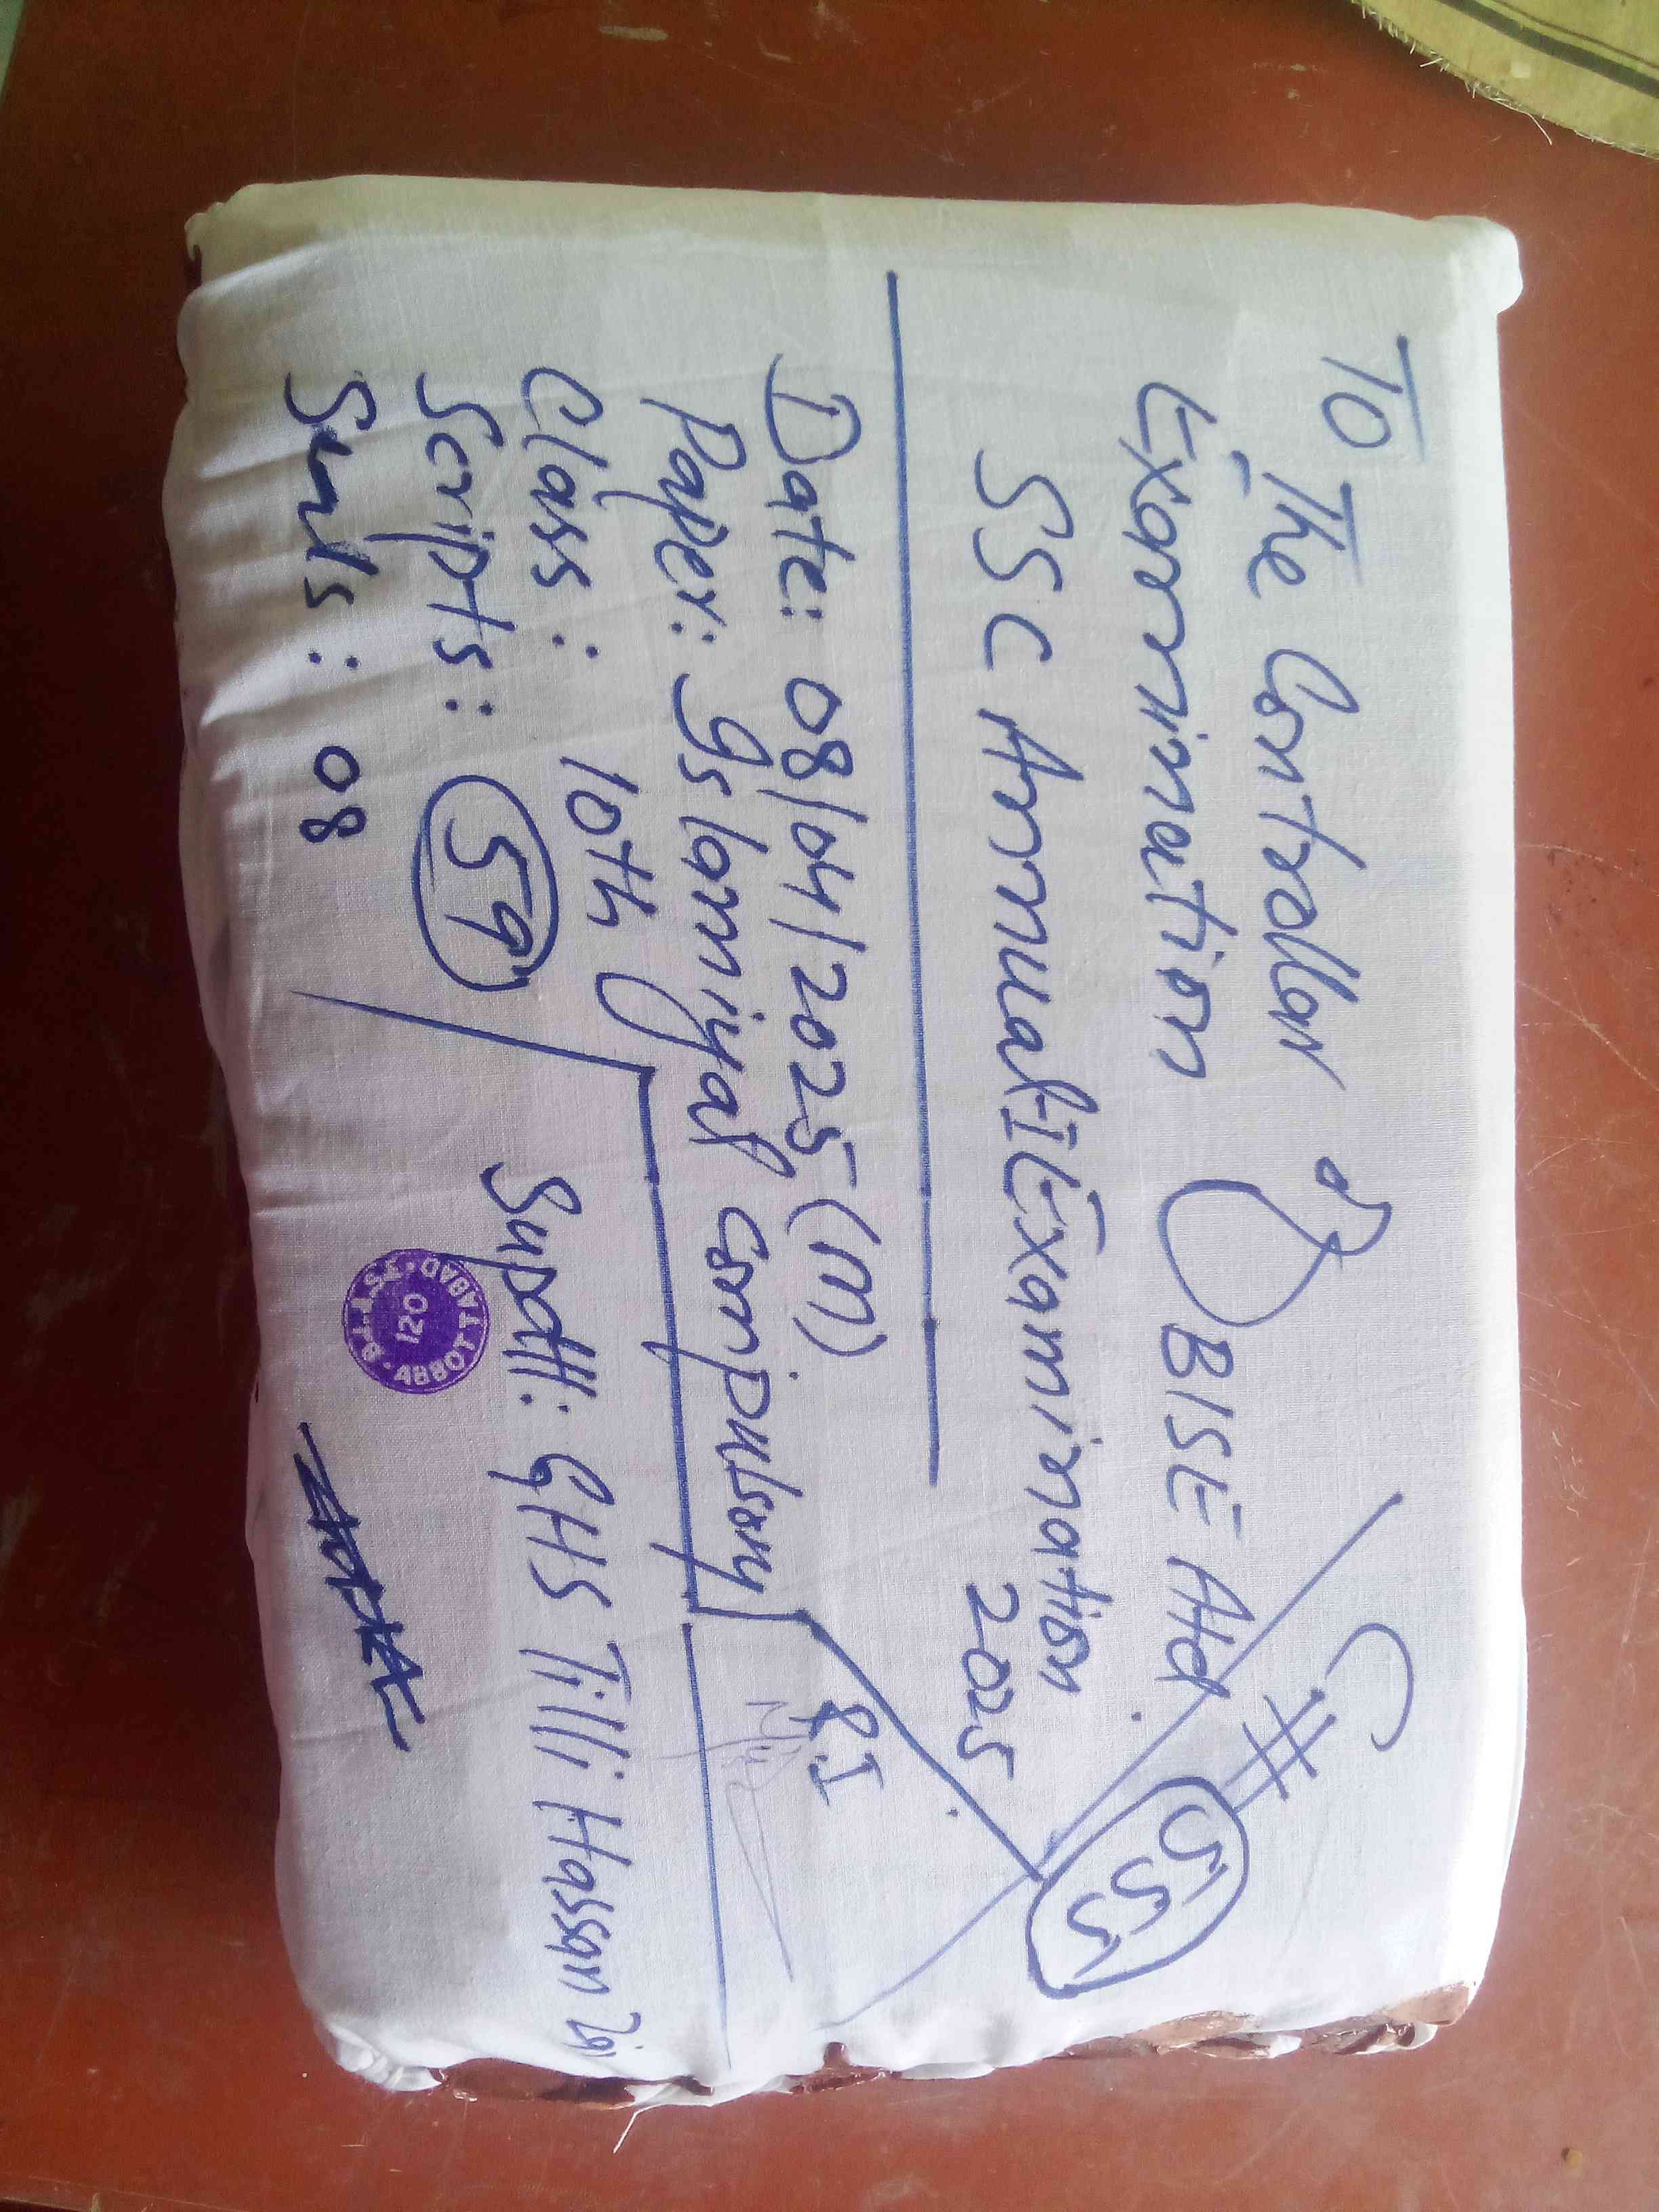 To The Controllar of
Examination BISE Atd
C #
555
SSC Annual-I Examination
2025
Date: 08/04/2025 (M)
Paper: Islamiyat Compulsory
Class: 10th
Scripts: 59
Seals: 08
Supdtt: GHS Tilli Hassan
B.I.S.E. ABBOTTABAD
120